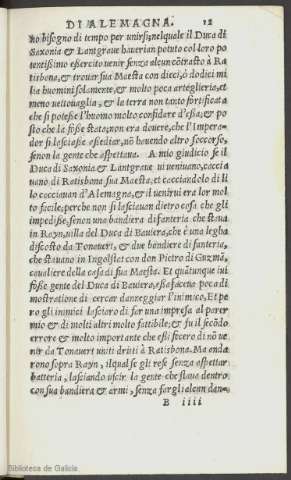 DI ALEMAGNA. 12
no bisogno di tempo per unirsi; nelquale il Duca di
Saxonia & Lantgraue hauerian potuto col loro po
tentissimo essercito uenir senza alcun cōtrasto à Ra
tisbona, & trouar sua Maesta con dieci, ò dodici mi
lia huomini solamente, & molto poca arteglieria, et
meno uettouaglia, & la terra non tanto fortificata
che si potesse l'huomo molto confidare d'essa; & po
sto che la fosse stato; non era douere, che l'Impera-
dor si lasciasse assediar, nō hauendo altro soccorso,
senon la gente che aspettaua. A mio giudicio se il
Duca di Saxonia & Lantgraue ui ueniuano, caccia
uano di Ratisbona sua Maestà, et cacciandolo di li
lo cacciauan d'Alemagna, & il uenirui era lor mol
to facile, perche non si lasciauan dietro cosa che gli
impedisse, senon una bandiera di fanteria che staua
in Rayn, uilla del Duca di Bauiera, che è una legha
discosto da Tonauert, & due bandiere di fanteria,
che stauano in Ingolstat con don Pietro di Guzmā,
caualiere della casa di sua Maesta. Et quātunque iui
fosse gente del Duca di Bauiera, essa faceua poca di
mostratione di cercar danneggiar l'inimico, Et pe
ro gli inimici lasciaro di far una impresa al parer
mio & di molti altri molto fattibile; & fu il secōdo
errore & molto importante che essi fecero di nō ue
nir da Tonauert uniti dritti à Ratisbona. Ma anda
rono sopra Rayn, ilqual se gli rese senza aspettar
batteria, lasciando uscir la gente che staua dentro
con sua bandiera & armi, senza fargli alcun dan-
B iiii
Biblioteca de Galicia